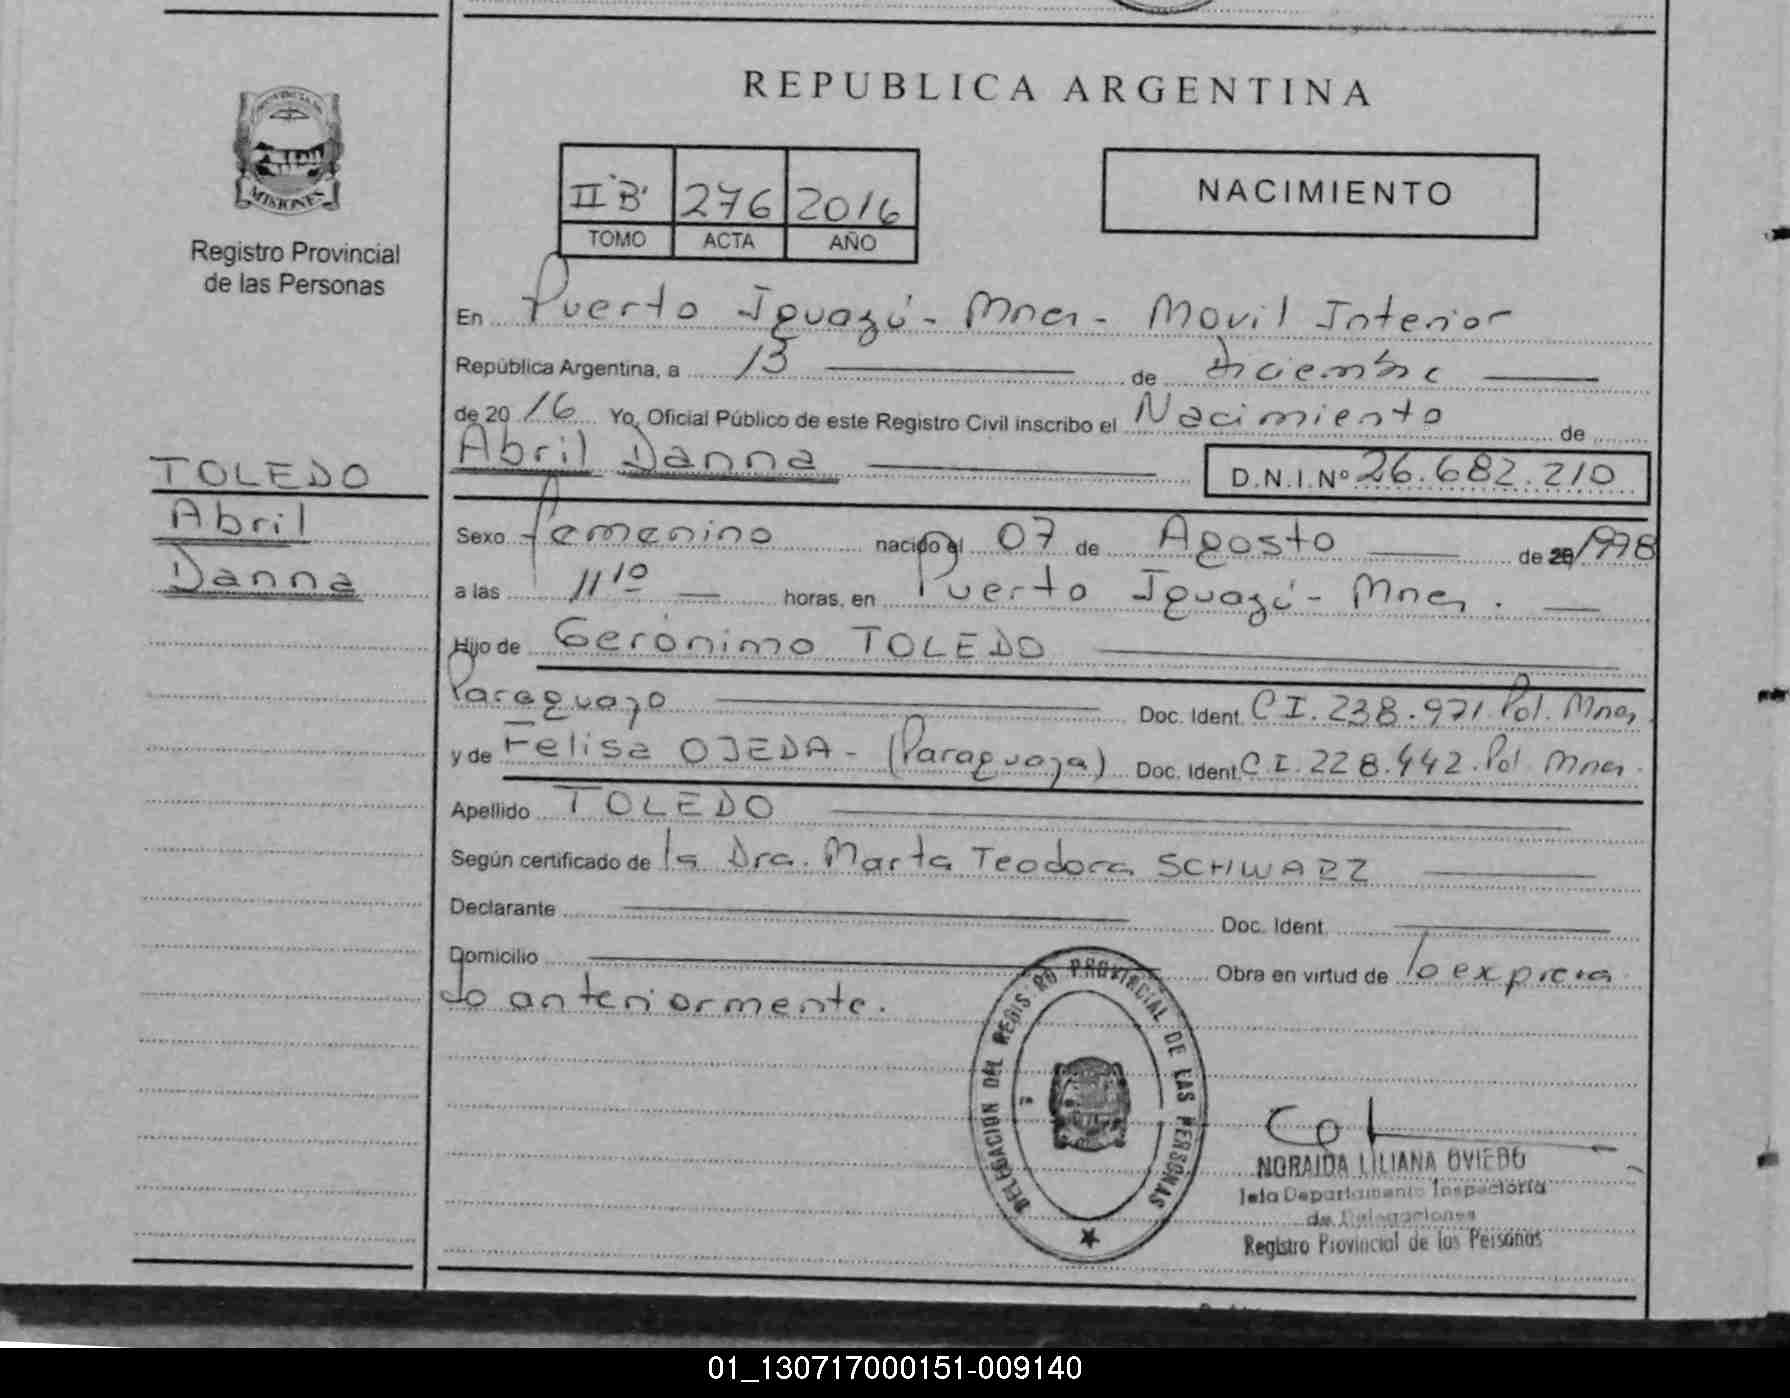 REPUBLICA ARGENTINA
PROVINCIA DE
MISIONES
Registro Provincial
de las Personas
II "B" 276 2016
TOMO ACTA AÑO
NACIMIENTO
En Puerto Iguazú - Mnes - Movil Interior
República Argentina, a 13 de Diciembre
de 20 16 Yo, Oficial Público de este Registro Civil inscribo el Nacimiento de
Abril Danna D.N.I. Nº 26.682.210
TOLEDO
Abril
Danna
Sexo femenino nacido el 07 de Agosto de 20/1998
a las 11 10 horas, en Puerto Iguazú - Mnes.
Hijo de Gerónimo TOLEDO
Paraguayo Doc. Ident. C I. 238.971. Pol. Mnes
y de Felisa OJEDA - (Paraguaya) Doc. Ident. C I. 228.442. Pol. Mnes.
Apellido TOLEDO
Según certificado de la Dra. Marta Teodora SCHWARZ
Declarante Doc. Ident.
Domicilio Obra en virtud de lo expresa
do anteriormente.
DELEGACION DEL REGISTRO PROVINCIAL DE LAS PERSONAS
NORAIDA LILIANA OVIEDO
Jefa Departamento Inspectoría
de Delegaciones
Registro Provincial de las Personas
01_130717000151-009140